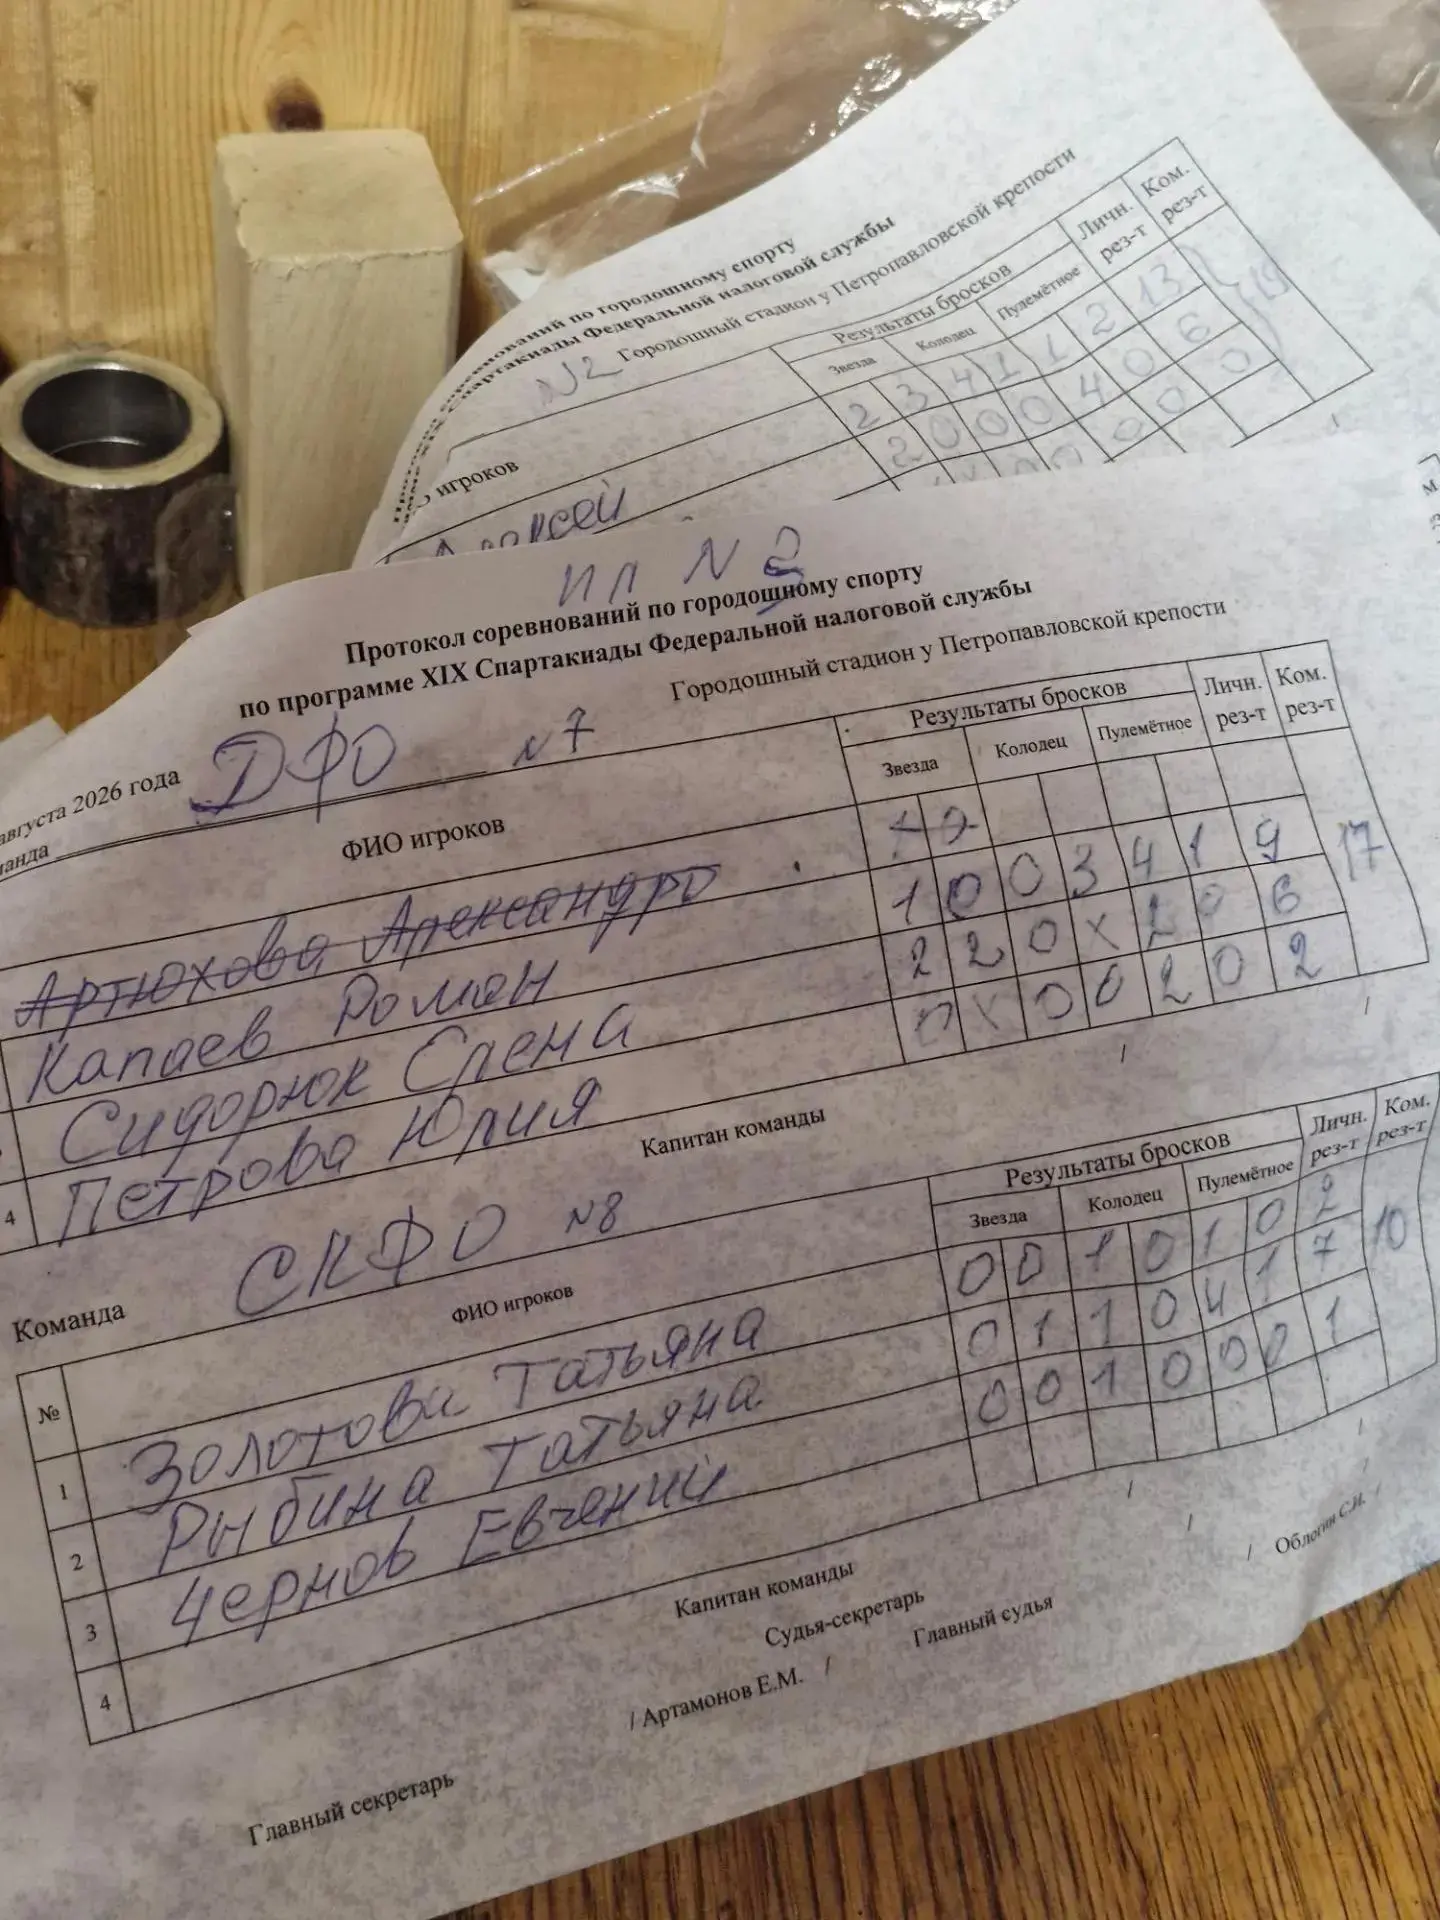 городошному спорту
Спартакиады Федеральной налоговой службы
N2 Городошный стадион у Петропавловской крепости
Результаты бросков Личн. рез-т Ком. рез-т
Звезда Колодец Пулемётное
игроков
2 3 4 1 1 2 13 19
2 0 0 0 4 0 6
ПЛ N 3
Протокол соревнований по городошному спорту
по программе XIX Спартакиады Федеральной налоговой службы
августа 2026 года Городошный стадион у Петропавловской крепости
ДФО N7
ФИО игроков Результаты бросков Личн. рез-т Ком. рез-т
Звезда Колодец Пулемётное
Артюхова Александра
Капаев Роман 1 0 0 3 4 1 9 17
Сидорюк Елена 2 2 0 X 2 0 6
4 Петрова Юлия 0 X 0 0 2 0 2
Капитан команды / /
Команда СКФО N8
№ ФИО игроков Результаты бросков Личн. рез-т Ком. рез-т
Звезда Колодец Пулемётное
1 Золотова Татьяна 0 0 1 0 1 0 2 10
2 Рыбина Татьяна 0 1 1 0 4 1 7
3 Чернов Евгений 0 0 1 0 0 0 1
4
Капитан команды / /
Судья-секретарь / /
Главный секретарь / Артамонов Е.М. / Главный судья / Облогин С.И. /